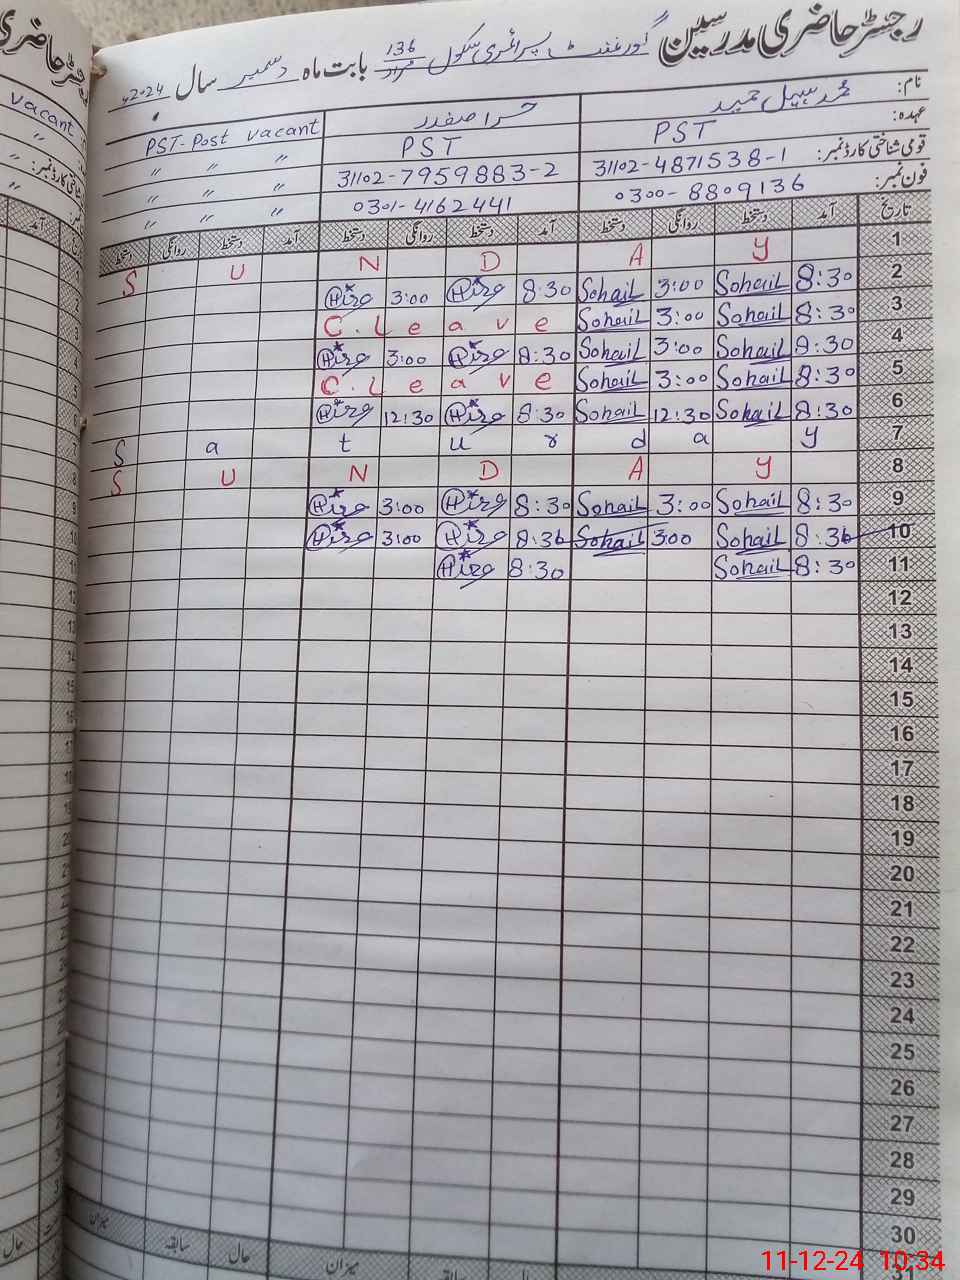 رجسٹر حاضری مدرسین گورنمنٹ پرائمری سکول 136 مراد بابت ماہ دسمبر سال 2024ء
نام: محمد سہیل حمید حرا صفدر PST-Post vacant
عہدہ: PST PST " " "
قومی شناختی کارڈ نمبر: 31102-4871538-1 31102-7959883-2 " " "
فون نمبر: 0300-8809136 0301-4162441 " " "
تاریخ آمد دستخط روانگی دستخط آمد دستخط روانگی دستخط آمد دستخط روانگی دستخط
1 S U N D A Y
2 8:30 Sohail 3:00 Sohail 8:30 Hira 3:00 Hira
3 8:30 Sohail 3:00 Sohail C.Leave
4 8:30 Sohail 3:00 Sohail 8:30 Hira 3:00 Hira
5 8:30 Sohail 3:00 Sohail C.Leave
6 8:30 Sohail 12:30 Sohail 8:30 Hira 12:30 Hira
7 S a t u r d a y
8 S U N D A Y
9 8:30 Sohail 3:00 Sohail 8:30 Hira 3:00 Hira
10 8:30 Sohail 3:00 Sohail 8:30 Hira 3:00 Hira
11 8:30 Sohail 8:30 Hira
12
13
14
15
16
17
18
19
20
21
22
23
24
25
26
27
28
29
30
31
میزان سابقہ حال میزان
11-12-24 10:34